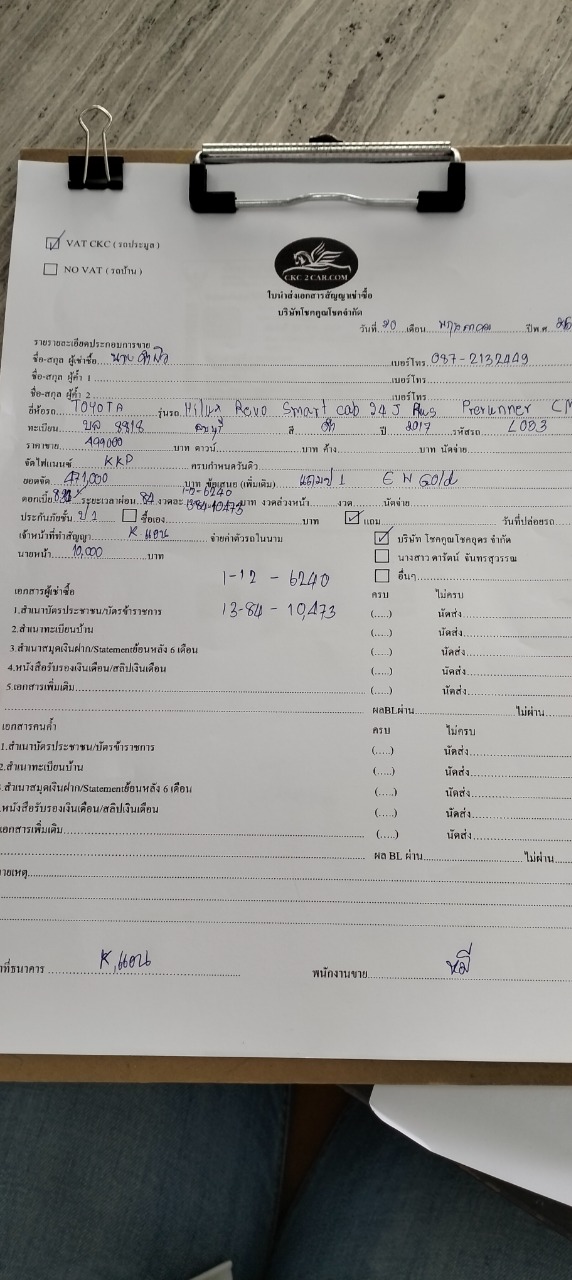 VAT CKC ( รถประมูล )
NO VAT ( รถบ้าน )
CKC 2 CAR.COM
ใบนำส่งเอกสารสัญญาเช่าซื้อ
บริษัทโชคคูณโชคจำกัด
วันที่ 20 เดือน พฤษภาคม ปีพ.ศ.
รายรายละเอียดประกอบการขาย
ชื่อ-สกุล ผู้เช่าซื้อ นาย เบอร์โทร. 087-2132449
ชื่อ-สกุล ผู้ค้ำ 1 เบอร์โทร.
ชื่อ-สกุล ผู้ค้ำ 2 เบอร์โทร.
ยี่ห้อรถ TOYOTA รุ่นรถ Hilux Revo Smart cab 24 J Plus Prerunner
ทะเบียน บล 8818 สี ดำ ปี 2017 รหัสรถ L003
ราคาขาย 499000 บาท ดาวน์ บาท ค้าง บาท นัดจ่าย
จัดไฟแนนซ์ KKP ครบกำหนดวันดิว
ยอดจัด 471,000 บาท ข้อเสนอ (เพิ่มเติม) แถมป1 EW Gold
ดอกเบี้ย ระยะเวลาผ่อน 84 งวดละ 1-12-6240 บาท งวดล่วงหน้า งวด นัดจ่าย
13-84-10473
ประกันภัยชั้น ป1 ซื้อเอง บาท แถม วันที่ปล่อยรถ
เจ้าหน้าที่ทำสัญญา K แอน จ่ายค่าตัวรถในนาม บริษัท โชคคูณโชคอุดร จำกัด
นายหน้า 10,000 บาท นางสาว ดารัตน์ จันทรสุวรรณ
อื่นๆ
1-12 - 6240
เอกสารผู้เช่าซื้อ ครบ ไม่ครบ
1.สำเนาบัตรประชาชน/บัตรข้าราชการ 13-84 - 10,473 (.....) นัดส่ง
2.สำเนาทะเบียนบ้าน (.....) นัดส่ง
3.สำเนาสมุดเงินฝาก/Statementย้อนหลัง 6 เดือน (.....) นัดส่ง
4.หนังสือรับรองเงินเดือน/สลิปเงินเดือน (.....) นัดส่ง
5.เอกสารเพิ่มเติม (.....) นัดส่ง
ผลBLผ่าน ไม่ผ่าน
เอกสารคนค้ำ ครบ ไม่ครบ
1.สำเนาบัตรประชาชน/บัตรข้าราชการ (.....) นัดส่ง
2.สำเนาทะเบียนบ้าน (.....) นัดส่ง
.สำเนาสมุดเงินฝาก/Statementย้อนหลัง 6 เดือน (.....) นัดส่ง
.หนังสือรับรองเงินเดือน/สลิปเงินเดือน (.....) นัดส่ง
เอกสารเพิ่มเติม (.....) นัดส่ง
ผล BL ผ่าน ไม่ผ่าน
ายเหตุ
าที่ธนาคาร K,แอน พนักงานขาย หมี